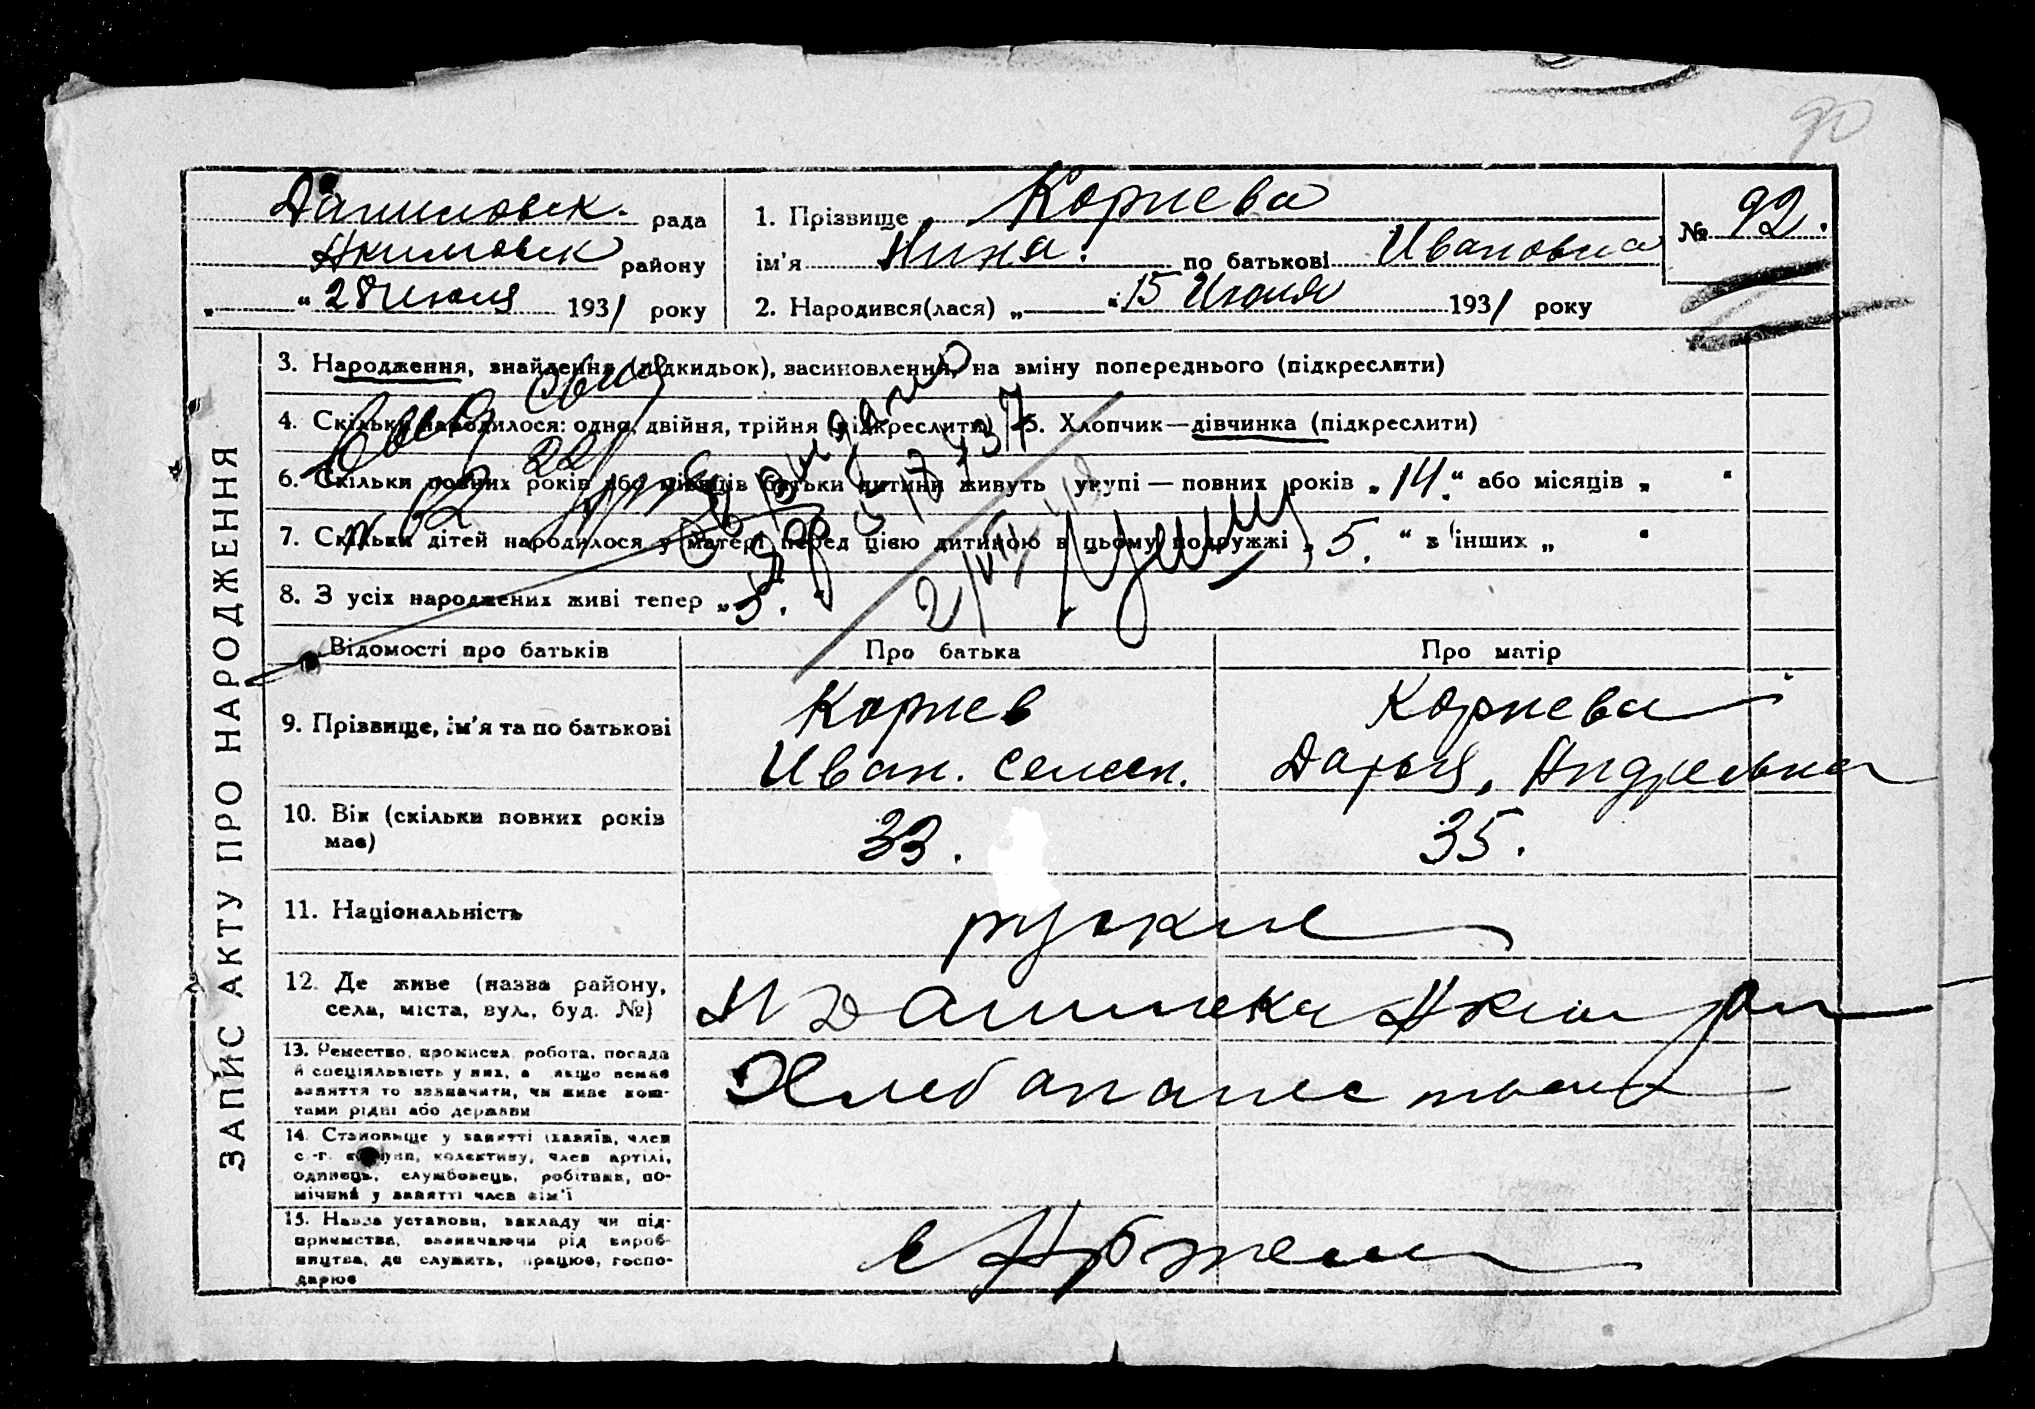 90
Даниловск. рада
Акимовск району
„ “ 28 Июля 1931 року
1. Прізвище Корнева
ім'я Нина. по батькові Ивановна
2. Народився(лася) „ “ 15 Июля 1931 року
№ 92.
ЗАПИС АКТУ ПРО НАРОДЖЕННЯ
3. Народження, знайдення (підкидьок), засиновлення, на зміну попереднього (підкреслити)
4. Скільки народилося: одно, двійня, трійня (підкреслити) 5. Хлопчик—дівчинка (підкреслити)
6. Скільки повних років або місяців батьки дитини живуть укупі — повних років „ 14. “ або місяців „ “
7. Скільки дітей народилося у матері перед цією дитиною в цьому подружжі „ 5. “ в інших „ “
8. З усіх народжених живі тепер „ 5. “
Відомості про батьків Про батька Про матір
9. Прізвище, ім'я та по батькові
Корнев
Иван. Семен.
Корнева
Дарья, Андреевна
10. Вік (скільки повних років
має)
33. 35.
11. Національність руские
12. Де живе (назва району,
села, міста, вул., буд. №)
Н Даниловка Аким рай
13. Ремество, промисел, робота, посада
й спеціяльність у них, а якщо немає
заняття то зазначити, чи живе кош-
тами рідні або держави
Хлебопашество
14. Становище у занятті (хазяїн, член
с.-г. комуни, колективу, член артілі,
одинець, службовець, робітник, по-
мічний у занятті член сім'ї
15. Назва установи, закладу чи під-
приємства, зазначаючи рід вироб-
ництва, де служить, працює, госпо-
дарює